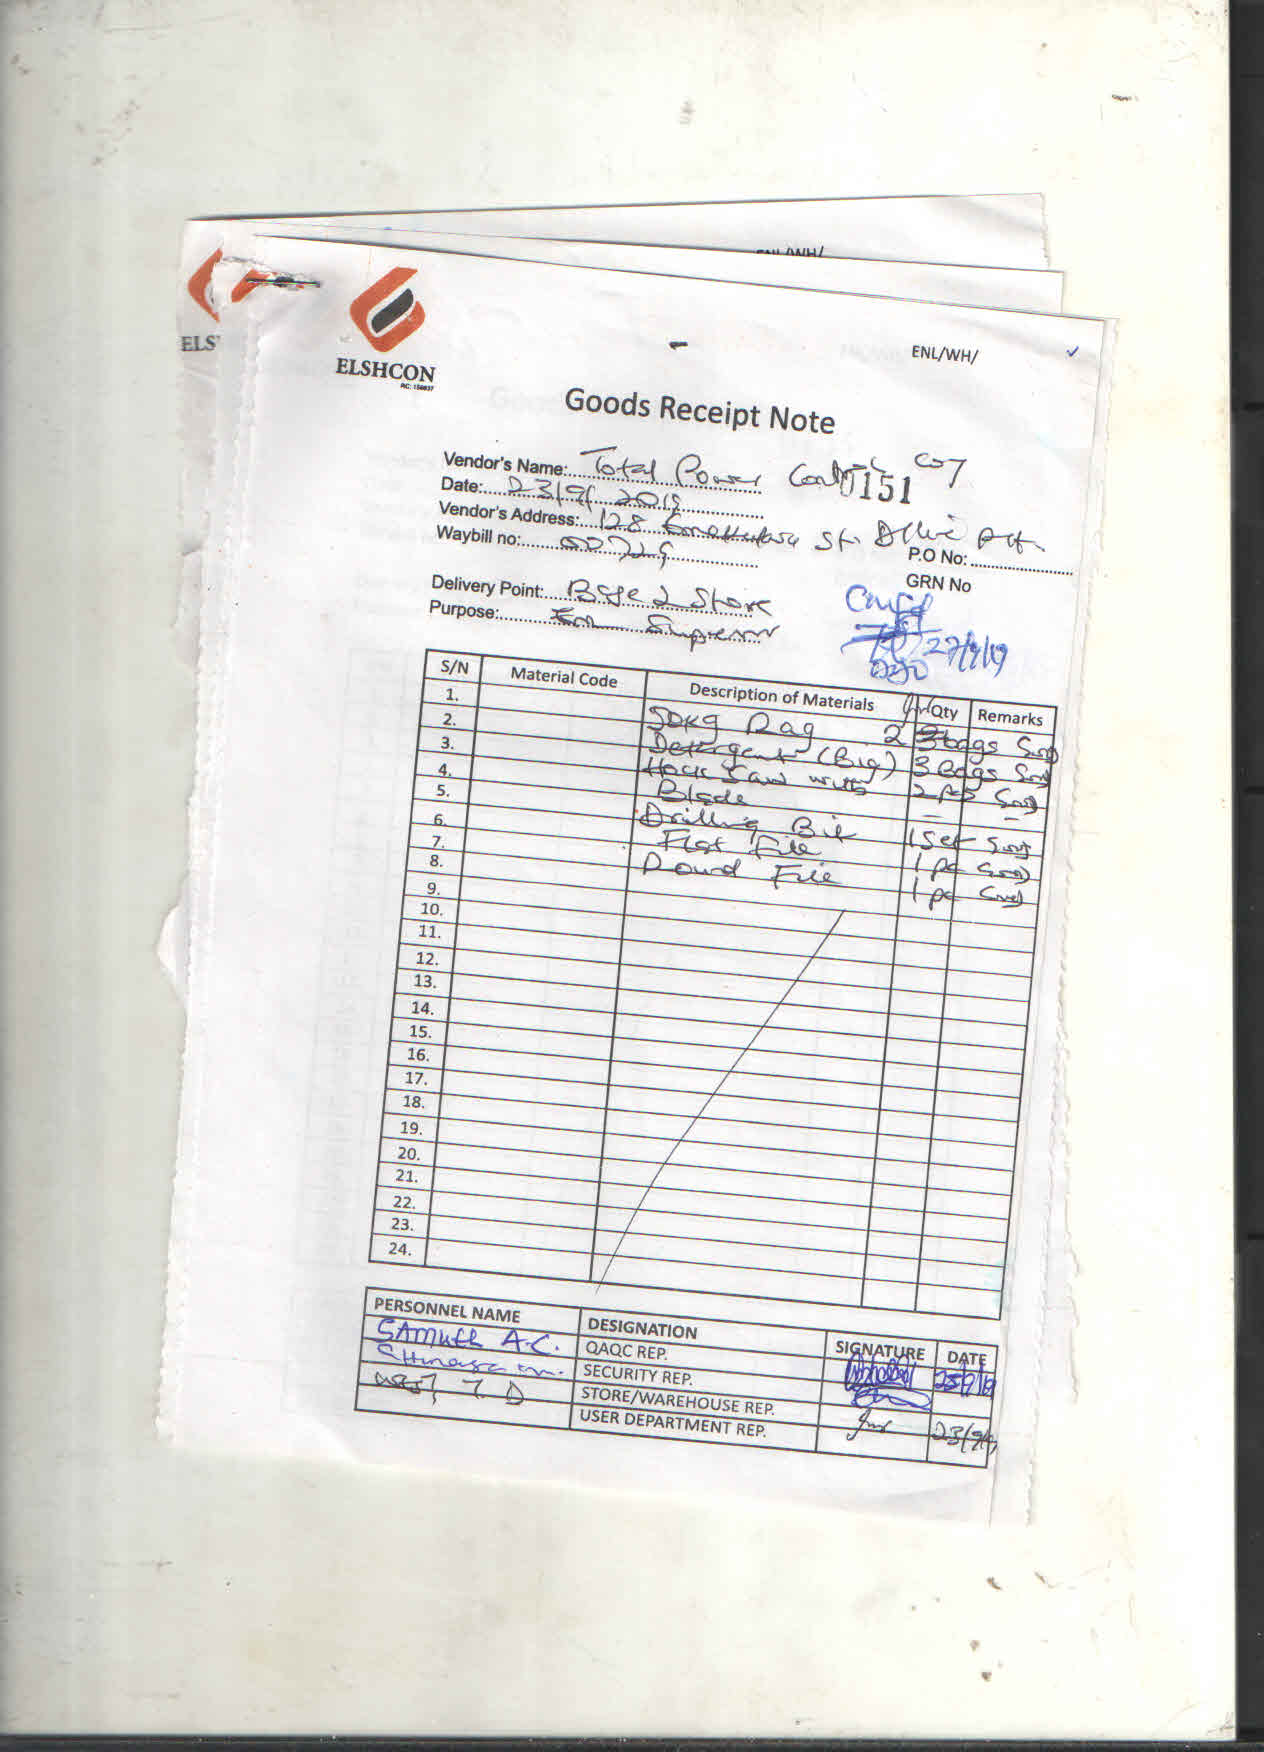 ENL/WH/
ELS
ELSHCON
RC: 156837
ENL/WH/
Goods Receipt Note
Vendor's Name: Total Power
0151
Date: 23/9/2019
Vendor's Address: 128 St.
Waybill no: 00729
P.O No:
GRN No
Delivery Point: Base 2 Store
Purpose:
27/9/19
S/N Material Code Description of Materials Qty Remarks
1. 50kg Rag 2 bags Good
2. Detergent (Big) 3 Bags Good
3. Hack Saw with 2 pcs Good
4. Blade - -
5. Drilling Bit 1 Set Good
6. Flat File 1 pc Good
7. Round File 1 pc Good
8.
9.
10.
11.
12.
13.
14.
15.
16.
17.
18.
19.
20.
21.
22.
23.
24.
PERSONNEL NAME DESIGNATION SIGNATURE DATE
SAMUEL A.C. QAQC REP. 25/9/19
SECURITY REP.
STORE/WAREHOUSE REP. 23/9/19
USER DEPARTMENT REP.